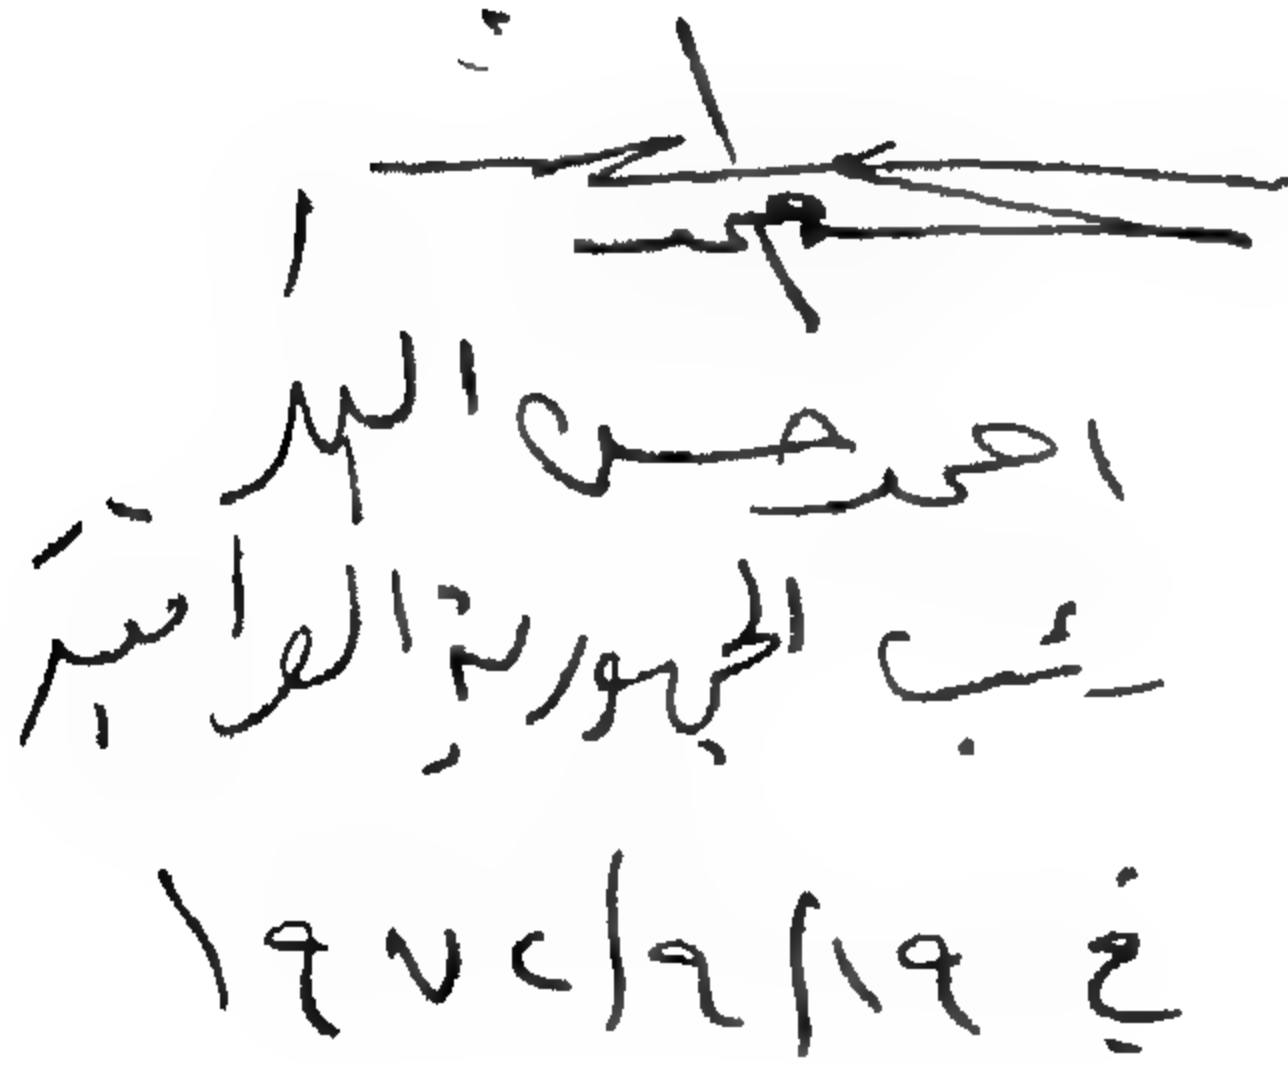 احمد حسن البكر
رئيس الجمهورية العراقية
في ١٩/٩/١٩٧٢